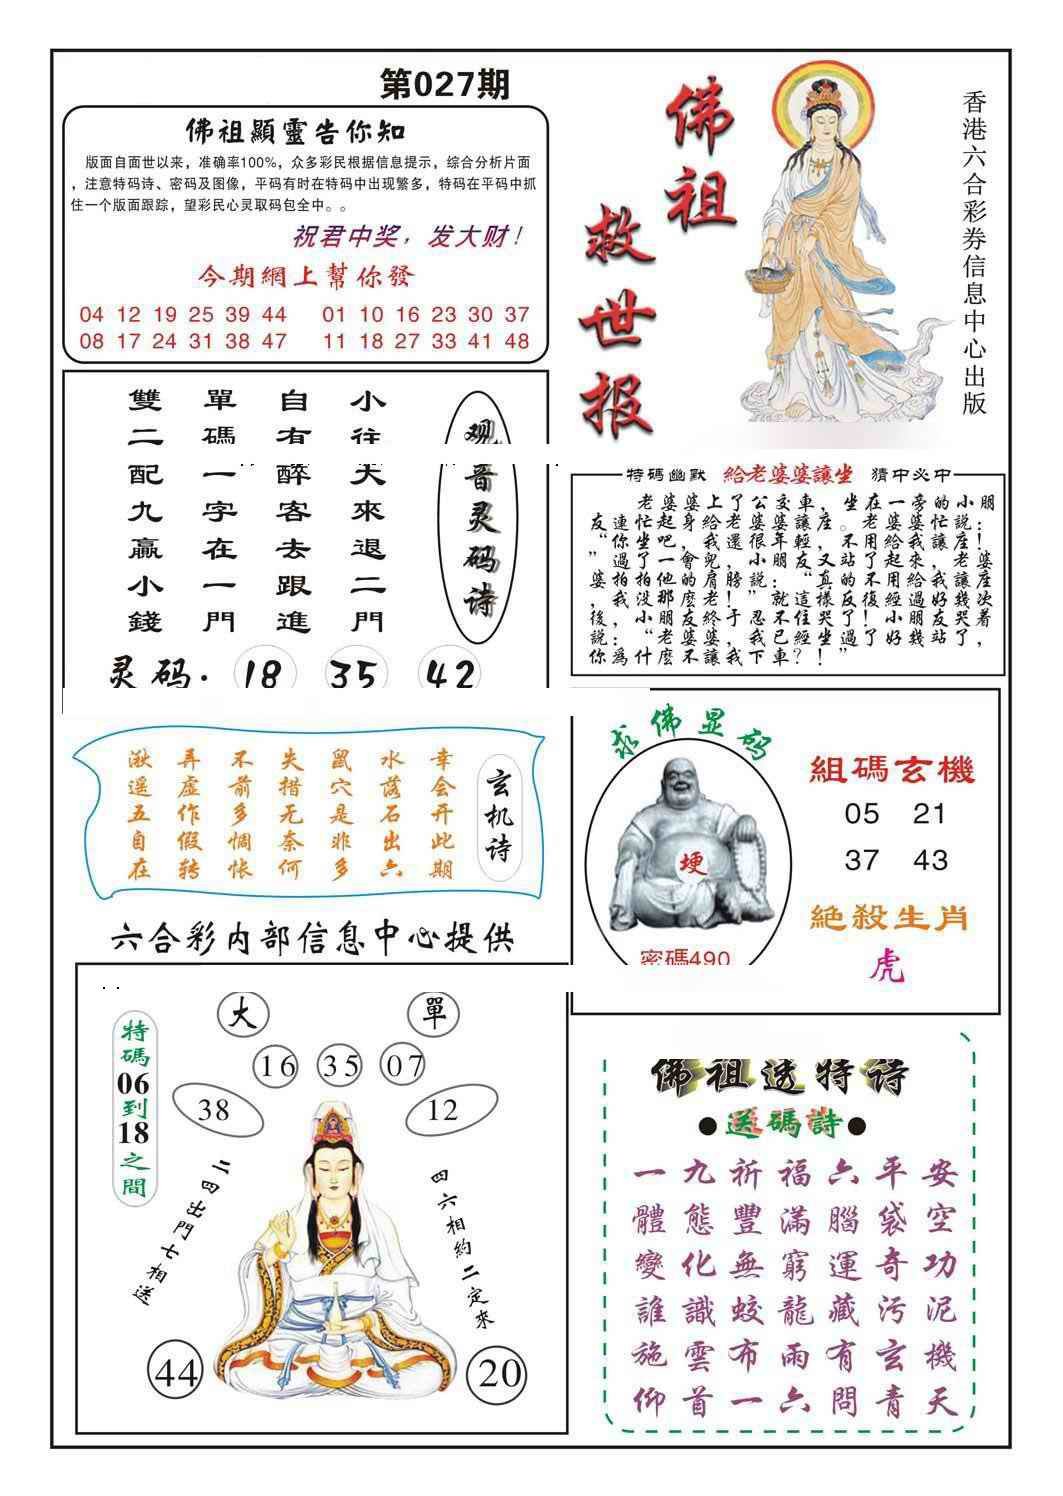 第027期
佛祖顯靈告你知
版面自面世以来，准确率100%，众多彩民根据信息提示，综合分析片面
，注意特码诗、密码及图像，平码有时在特码中出现繁多，特码在平码中抓
住一个版面跟踪，望彩民心灵取码包全中。。
祝君中奖，发大财！
今期網上幫你發
04 12 19 25 39 44 01 10 16 23 30 37
08 17 24 31 38 47 11 18 27 33 41 48
佛祖
救世报
香港六合彩券信息中心出版
观音灵码诗
小往大來退二門
自有醉客去跟進
單碼一字在一門
雙二配九贏小錢
灵码. 18 35 42
特碼幽默 給老婆婆讓坐 猜中必中
老婆婆上了公交車，坐在一旁的小朋
友連忙起身給老婆婆讓座。老婆婆忙説：
“你坐吧，我還很年輕，不用給我讓座！
”過了一會兒，小朋友又站了起來，老婆
婆拍拍他的肩膀説：“真的不用給我讓座
，我没那麽老！”就這樣反復經過好幾次
後，小朋友終于忍不住哭了！小朋友哭着
説：“老婆婆，我已經坐過了好幾站了，
你爲什麽不讓我下車？！”
玄机诗
幸会开此期
水落石出六
鼠穴是非多
失措无奈何
不前多惆怅
弄虚作假转
湫遥五自在
六合彩内部信息中心提供
求佛显码
埂
密碼490
組碼玄機
05 21
37 43
絶殺生肖
虎
特碼06到18之間
大 單
16 35 07
38 12
二四出門七相送
四六相約二定來
44 20
佛祖透特诗
●送碼詩●
一九祈福六平安
體態豐滿腦袋空
變化無窮運奇功
誰識蛟龍藏污泥
施雲布雨有玄機
仰首一六問青天